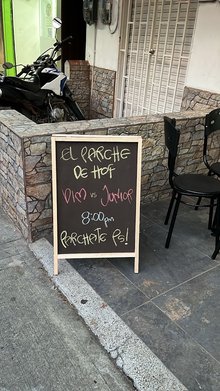 El PARCHE
DE HOY
DIM vs JUNIOR
8:00pm
PARCHATE PS!